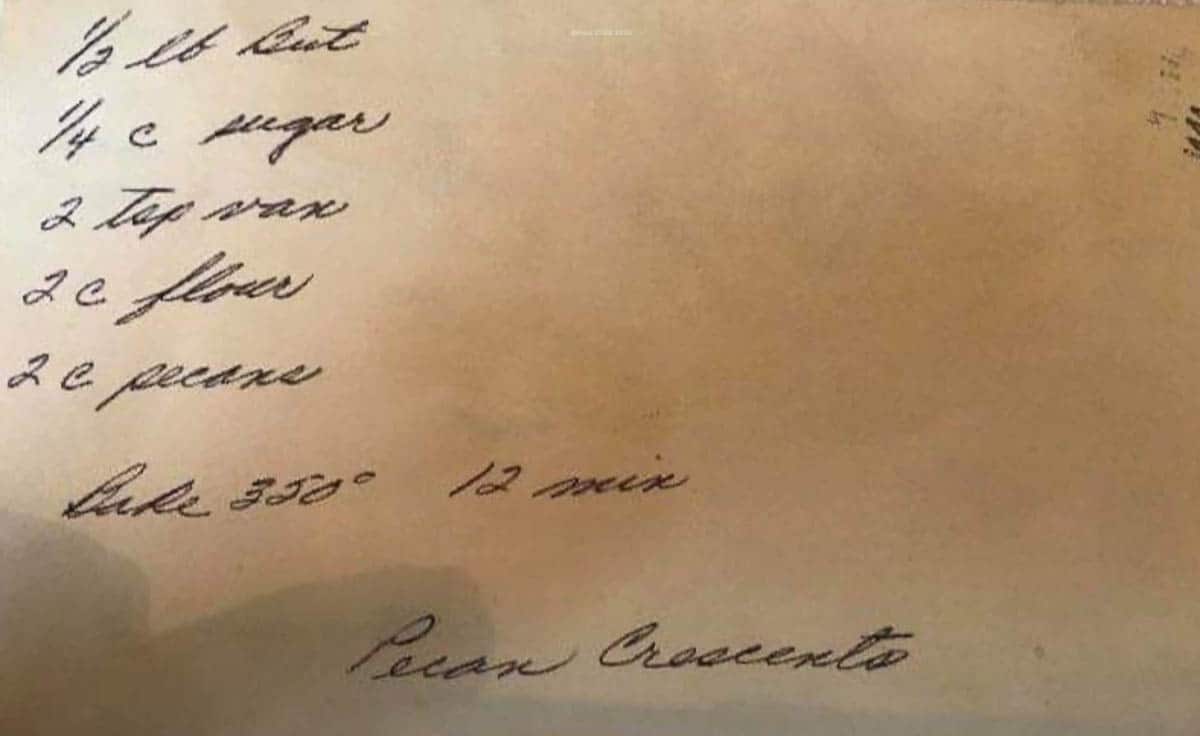 1/2 lb But
1/4 c sugar
2 tsp van
2 c flour
2 c pecans
Bake 350° 12 min
Pecan Crescents